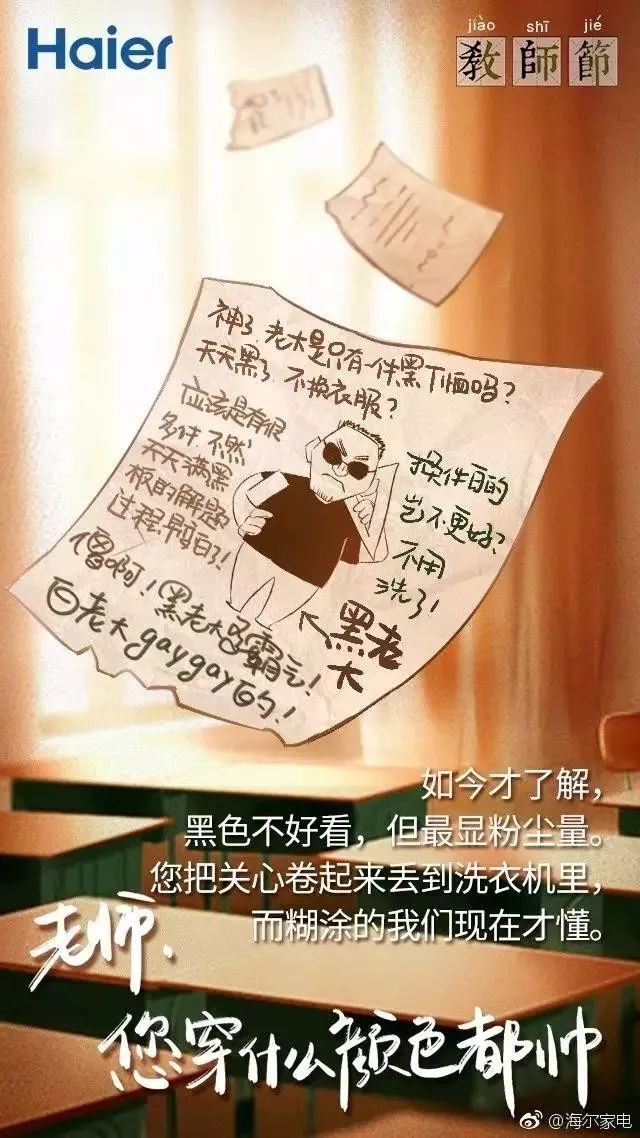 Haier
jiào shī jié
教師節
神了 老大是只有一件黑T恤吗?
天天黑了 不换衣服?
应该是有很
多件 不然
天天满黑
板的解题
过程 早白了!
换件白的
岂不更好?
不用
洗了!
傻啊! 黑老大多霸气!
白老大gaygay的!
黑老
大
如今才了解,
黑色不好看,但最显粉尘量。
您把关心卷起来丢到洗衣机里,
而糊涂的我们现在才懂。
老师、
您穿什么颜色都帅
@海尔家电